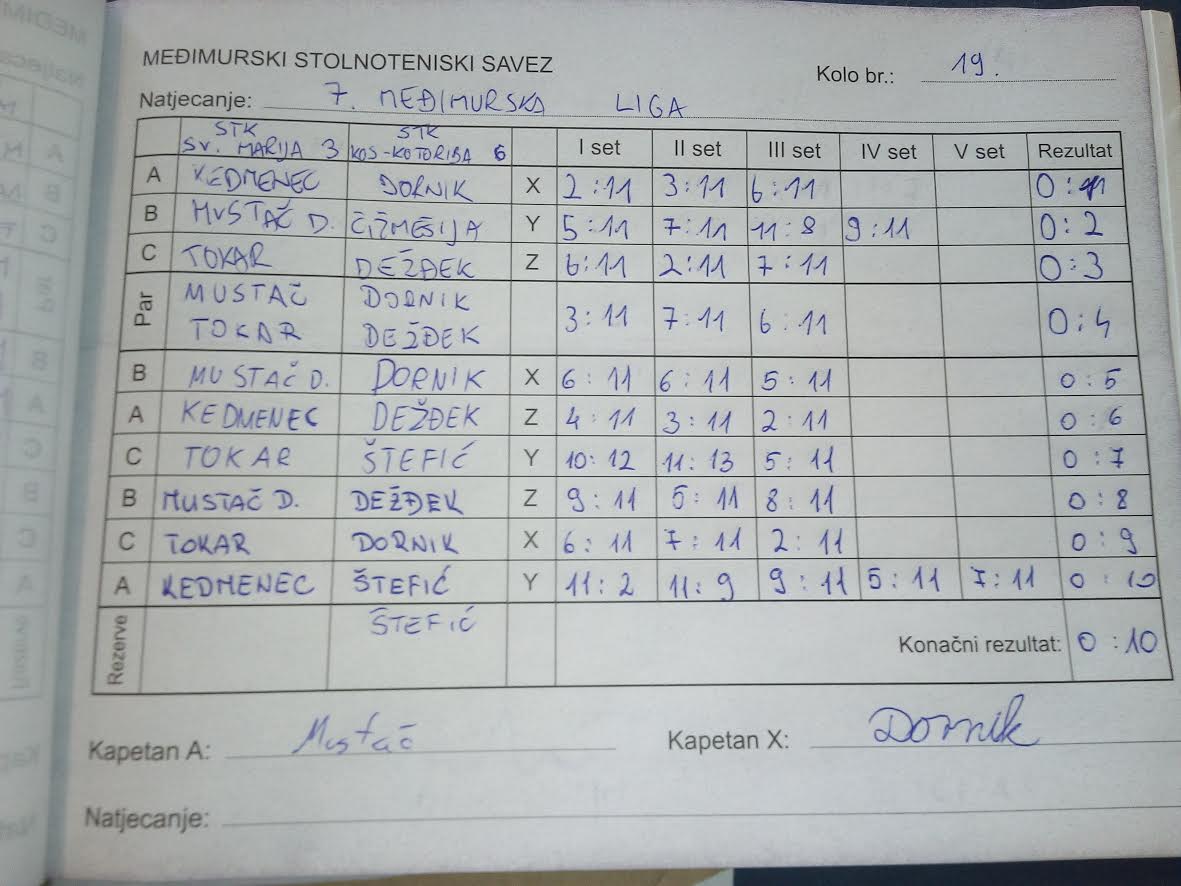 MEĐIMURSKI STOLNOTENISKI SAVEZ
Kolo br.: 19.
Natjecanje: 7. MEĐIMURSKA LIGA
STK SV. MARIJA 3 STK KOS-KOTORIBA 6 I set II set III set IV set V set Rezultat
A KEDMENEC DORNIK X 2:11 3:11 6:11 0:1
B MUSTAČ D. ČIŽMEŠIJA Y 5:11 7:11 11:8 9:11 0:2
C TOKAR DEŽĐEK Z 6:11 2:11 7:11 0:3
Par MUSTAČ TOKAR DORNIK DEŽĐEK 3:11 7:11 6:11 0:4
B MUSTAČ D. DORNIK X 6:11 6:11 5:11 0:5
A KEDMENEC DEŽĐEK Z 4:11 3:11 2:11 0:6
C TOKAR ŠTEFIĆ Y 10:12 11:13 5:11 0:7
B MUSTAČ D. DEŽĐEK Z 9:11 5:11 8:11 0:8
C TOKAR DORNIK X 6:11 7:11 2:11 0:9
A KEDMENEC ŠTEFIĆ Y 11:2 11:9 9:11 5:11 7:11 0:10
Rezerve ŠTEFIĆ Konačni rezultat: 0:10
Kapetan A: Mustač Kapetan X: Dornik
Natjecanje: